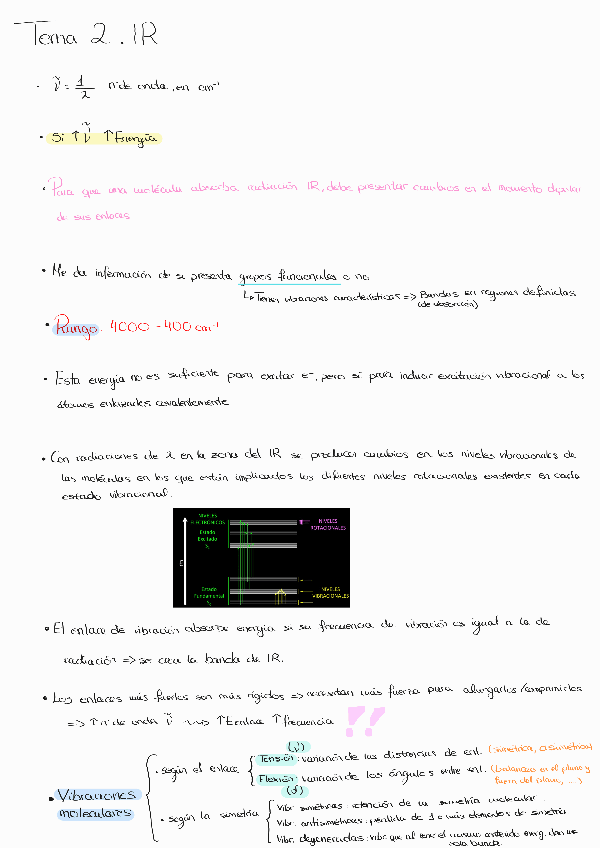 Tema 2. IR
· ν̃ = 1/λ nº de onda, en cm⁻¹
· Si ↑ ν̃ ↑ Energía
· Para que una molécula absorba radiación IR, debe presentar cambios en el momento dipolar
de sus enlaces
· Me da información de si presenta grupos funcionales o no
↳ Tienen vibraciones características => Bandas en regiones definidas
(de absorción)
· Rango: 4000 - 400 cm⁻¹
· Esta energía no es suficiente para excitar e⁻, pero sí para inducir excitación vibracional a los
átomos enlazados covalentemente
· Con radiaciones de λ en la zona del IR se producen cambios en los niveles vibracionales de
las moléculas en los que están implicados los diferentes niveles rotacionales existentes en cada
estado vibracional.
NIVELES
ELECTRÓNICOS
NIVELES
ROTACIONALES
Estado
Excitado
S₁
E
Estado
Fundamental
S₀
NIVELES
VIBRACIONALES
· El enlace de vibración absorbe energía si su frecuencia de vibración es igual a la de
radiación => se crea la banda de IR.
· Los enlaces más fuertes son más rígidos => necesitan más fuerza para alargarlos/comprimirlos
=> ↑ nº de onda ν̃ ~~> ↑ E enlace ↑ frecuencia !!
· Vibraciones
moleculares
· según el enlace
(ν)
Tensión: variación de las distancias de enl. (simétrica, asimétrica)
Flexión: variación de los ángulos entre enl. (balanceo en el plano y
fuera del plano, ...)
(δ)
· según la simetría
Vibr. simétricas: retención de la simetría molecular.
Vibr. antisimétricas: pérdida de 1 o más elementos de simetría
Vibr. degeneradas: vibr. que al tener el mismo contenido energ. dan una
sola banda.